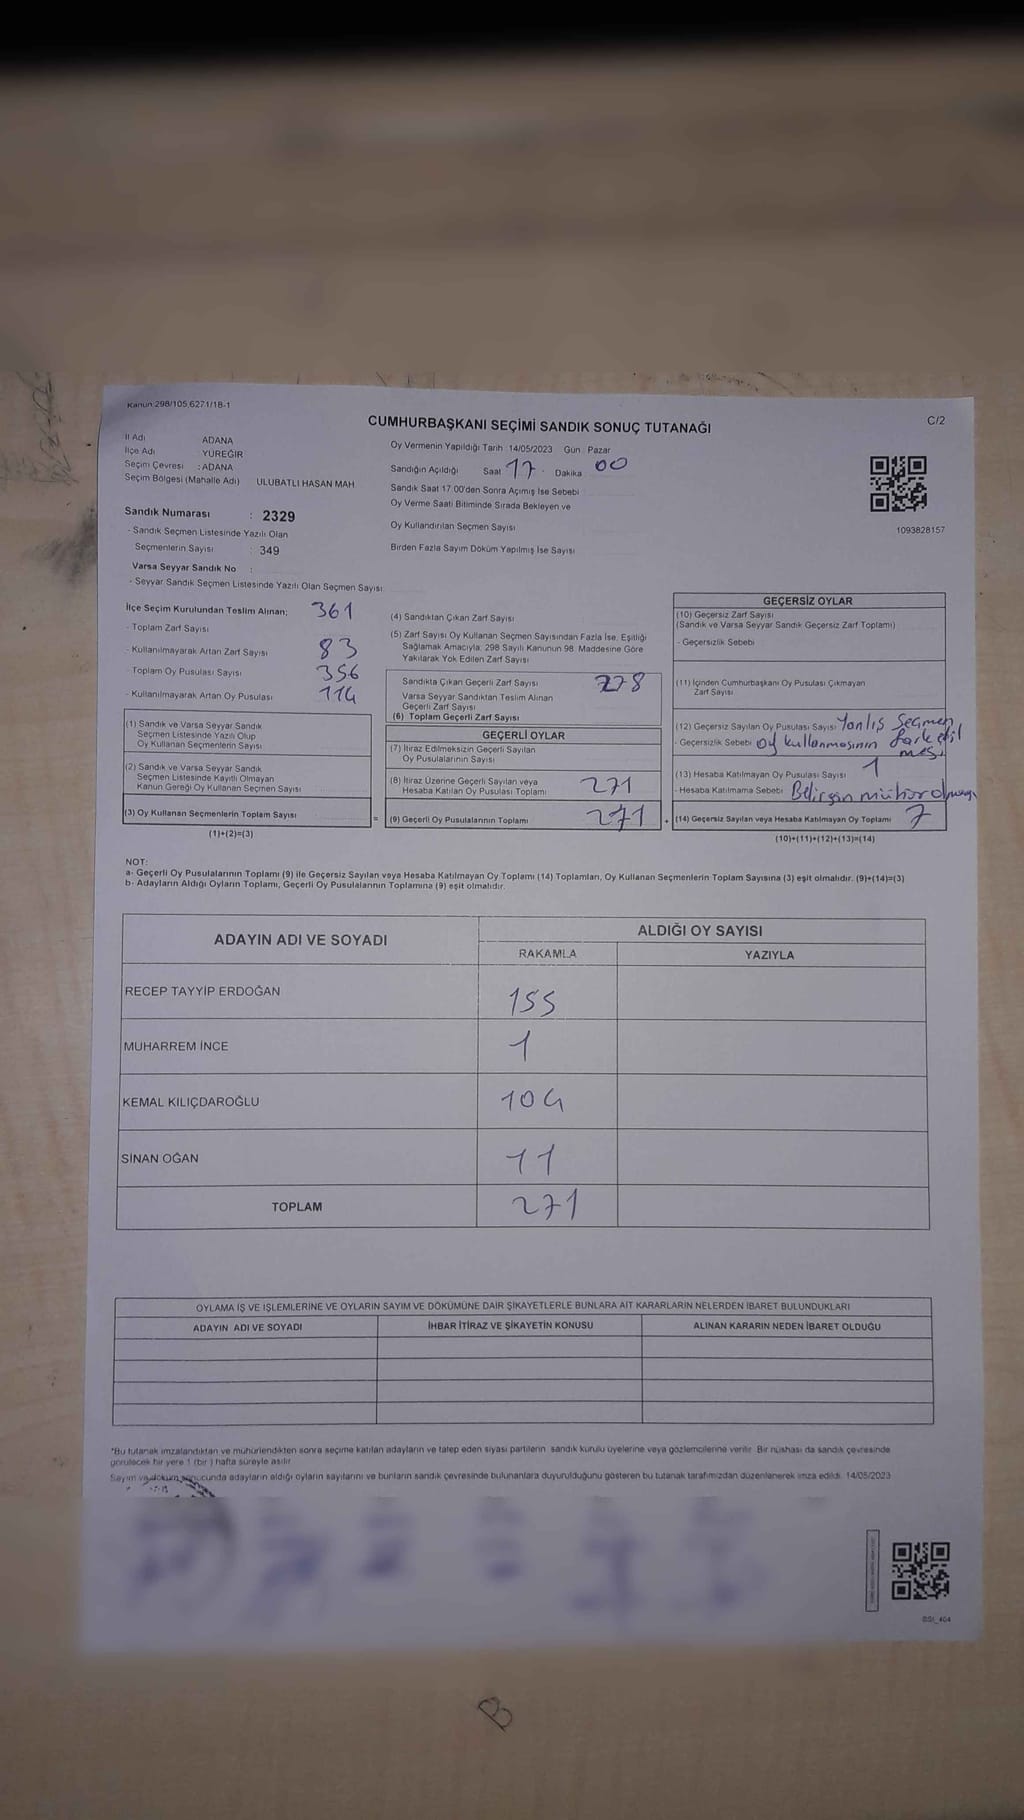 Kanun:298/105,6271/18-1
CUMHURBAŞKANI SEÇİMİ SANDIK SONUÇ TUTANAĞI
C/2
İl Adı ADANA
İlçe Adı : YÜREĞİR
Seçim Çevresi : ADANA
Seçim Bölgesi (Mahalle Adı) ULUBATLI HASAN MAH
Sandık Numarası : 2329
- Sandık Seçmen Listesinde Yazılı Olan
Seçmenlerin Sayısı : 349
Varsa Seyyar Sandık No :
- Seyyar Sandık Seçmen Listesinde Yazılı Olan Seçmen Sayısı
Oy Vermenin Yapıldığı Tarih 14/05/2023 Gün Pazar
Sandığın Açıldığı Saat 17 Dakika 00
Sandık Saat 17:00'den Sonra Açımış İse Sebebi
Oy Verme Saati Bitiminde Sırada Bekleyen ve
Oy Kullandırılan Seçmen Sayısı
Birden Fazla Sayım Döküm Yapılmış İse Sayısı
1093828157
İlçe Seçim Kurulundan Teslim Alınan; 361
- Toplam Zarf Sayısı
- Kullanılmayarak Artan Zarf Sayısı 83
- Toplam Oy Pusulası Sayısı 356
- Kullanılmayarak Artan Oy Pusulası 114
(1) Sandık ve Varsa Seyyar Sandık
Seçmen Listesinde Yazılı Olup
Oy Kullanan Seçmenlerin Sayısı
(2) Sandık ve Varsa Seyyar Sandık
Seçmen Listesinde Kayıtlı Olmayan
Kanun Gereği Oy Kullanan Seçmen Sayısı
(3) Oy Kullanan Seçmenlerin Toplam Sayısı =
(1)+(2)=(3)
(4) Sandıktan Çıkan Zarf Sayısı
(5) Zarf Sayısı Oy Kullanan Seçmen Sayısından Fazla İse, Eşitliği
Sağlamak Amacıyla; 298 Sayılı Kanunun 98. Maddesine Göre
Yakılarak Yok Edilen Zarf Sayısı
Sandıkta Çıkan Geçerli Zarf Sayısı 278
Varsa Seyyar Sandıktan Teslim Alınan
Geçerli Zarf Sayısı
(6) Toplam Geçerli Zarf Sayısı
GEÇERLİ OYLAR
(7) İtiraz Edilmeksizin Geçerli Sayılan
Oy Pusulalarının Sayısı
(8) İtiraz Üzerine Geçerli Sayılan veya
Hesaba Katılan Oy Pusulası Toplamı 271
(9) Geçerli Oy Pusulalarının Toplamı 271 +
GEÇERSİZ OYLAR
(10) Geçersiz Zarf Sayısı
(Sandık ve Varsa Seyyar Sandık Geçersiz Zarf Toplamı)
- Geçersizlik Sebebi
(11) İçinden Cumhurbaşkanı Oy Pusulası Çıkmayan
Zarf Sayısı
(12) Geçersiz Sayılan Oy Pusulası Sayısı Yanlış Seçmen
- Geçersizlik Sebebi oy kullanmasının farkedil
mesi
(13) Hesaba Katılmayan Oy Pusulası Sayısı 1
- Hesaba Katılmama Sebebi mühür
(14) Geçersiz Sayılan veya Hesaba Katılmayan Oy Toplamı 7
(10)+(11)+(12)+(13)=(14)
NOT:
a- Geçerli Oy Pusulalarının Toplamı (9) ile Geçersiz Sayılan veya Hesaba Katılmayan Oy Toplamı (14) Toplamları, Oy Kullanan Seçmenlerin Toplam Sayısına (3) eşit olmalıdır. (9)+(14)=(3)
b- Adayların Aldığı Oyların Toplamı, Geçerli Oy Pusulalarının Toplamına (9) eşit olmalıdır.
ADAYIN ADI VE SOYADI ALDIĞI OY SAYISI
RAKAMLA YAZIYLA
RECEP TAYYİP ERDOĞAN 155
MUHARREM İNCE 1
KEMAL KILIÇDAROĞLU 104
SİNAN OĞAN 11
TOPLAM 271
OYLAMA İŞ VE İŞLEMLERİNE VE OYLARIN SAYIM VE DÖKÜMÜNE DAİR ŞİKAYETLERLE BUNLARA AİT KARARLARIN NELERDEN İBARET BULUNDUKLARI
ADAYIN ADI VE SOYADI İHBAR İTİRAZ VE ŞİKAYETİN KONUSU ALINAN KARARIN NEDEN İBARET OLDUĞU
*Bu tutanak imzalandıktan ve mühürlendikten sonra seçime katılan adayların ve talep eden siyasi partilerin sandık kurulu üyelerine veya gözlemcilerine verilir. Bir nüshası da sandık çevresinde
görülecek bir yere 1 (bir) hafta süreyle asılır.
Sayım ve döküm sonucunda adayların aldığı oyların sayılarını ve bunların sandık çevresinde bulunanlara duyurulduğunu gösteren bu tutanak tarafımızdan düzenlenerek imza edildi. 14/05/2023
SSI_404
B